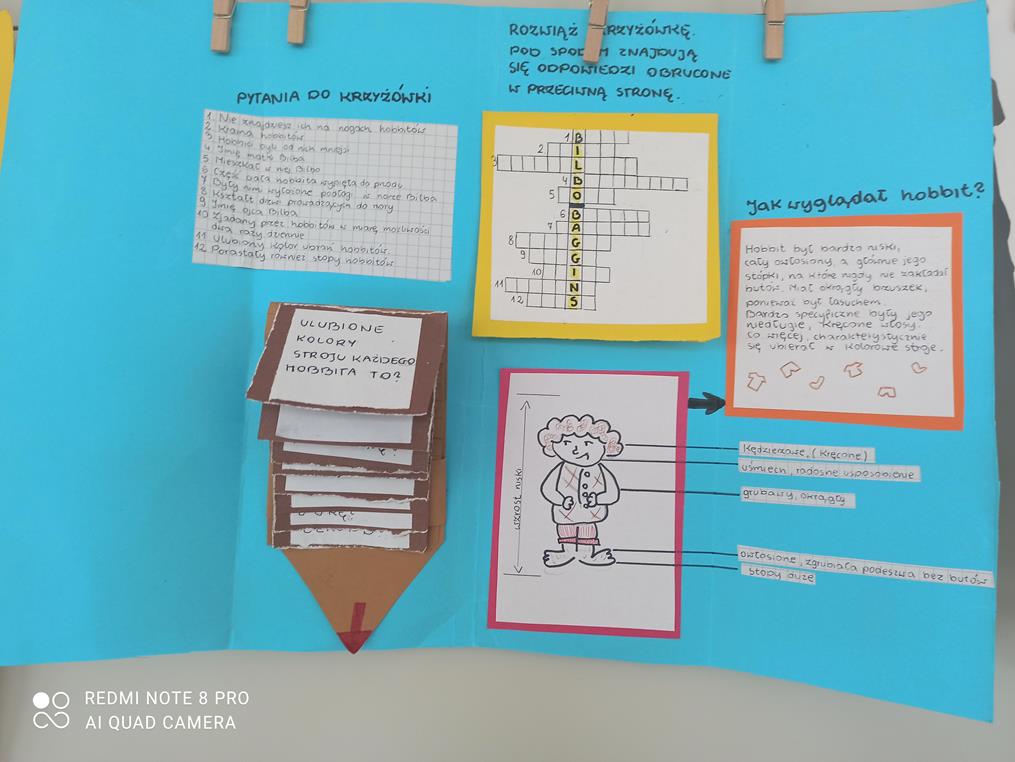 ROZWIĄŻ KRZYŻÓWKĘ.
POD SPODEM ZNAJDUJĄ
SIĘ ODPOWIEDZI OBRUCONE
W PRZECIWNĄ STRONĘ.
PYTANIA DO KRZYŻÓWKI
1. Nie znajdziesz ich na nogach hobbitów
2. Kraina hobbitów.
3. Hobbici byli od nich mniejsi
4. Imię matki Bilba
5. Mieszkał w niej Bilbo
6. Część ciała hobbita wypięta do przodu
7. Były nimi wyłożone podłogi w norze Bilba
8. Kształt drzwi prowadzących do nory
9. Imię ojca Bilba
10. Zjadany przez hobbitów w miarę możliwości
dwa razy dziennie
11. Ulubiony kolor ubrań hobbitów.
12. Porastały również stopy hobbitów
1 B
2 I
3 L
4 B
5 O
6 B
7 A
8 G
9 G
10 I
11 N
12 S
Jak wyglądał hobbit?
Hobbit był bardzo niski,
cały owłosiony, a głównie jego
stópki, na które nigdy nie zakładał
butów. Miał okrągły brzuszek,
ponieważ był łasuchem.
Bardzo specyficzne były jego
niedługie, kręcone włosy.
Co więcej, charakterystycznie
się ubierał w kolorowe stroje.
ULUBIONE
KOLORY
STROJU KAŻDEGO
HOBBITA TO?
wzrost niski
Kędzierzawe, (kręcone)
uśmiech, radosne usposobienie
grubawy, okrągły
owłosione, zgrubiała podeszwa bez butów
stopy duże
REDMI NOTE 8 PRO
AI QUAD CAMERA